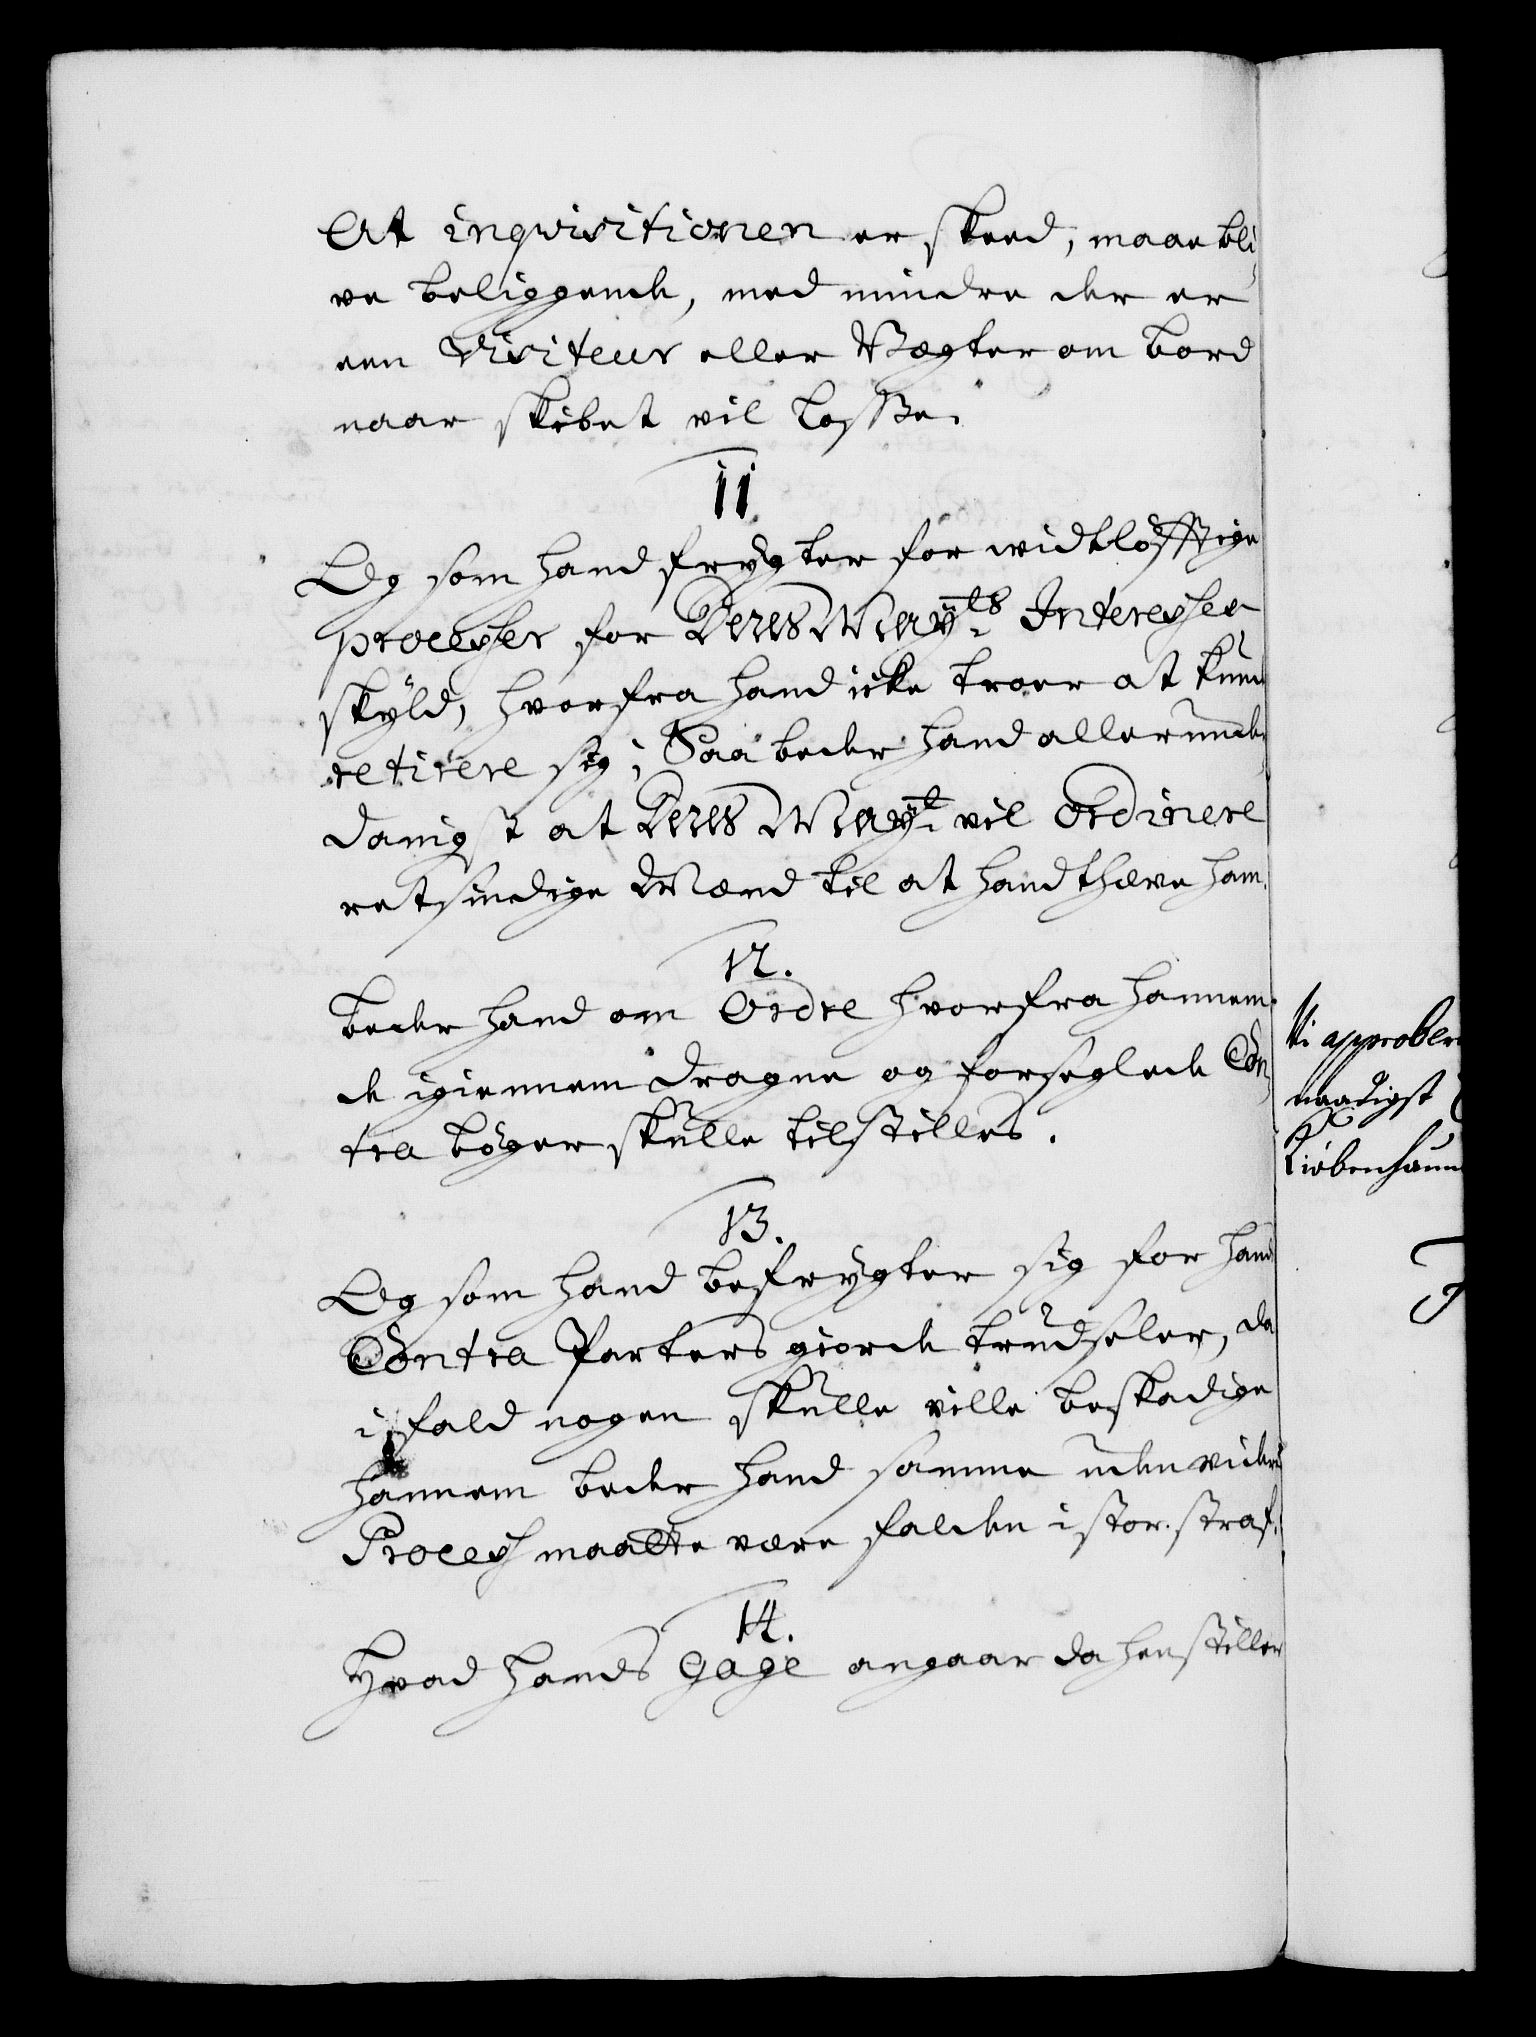 At inqvisitionen er skeed, maae bli
ve beliggende, med mindre der er
een Visiteur eller Vægter om bord
naar skibet vil losse.
11
Og som hand frygter for widtløfftige
processer for Deres Mayts Interesses
skyld, hvorfra hand icke troer at kunde
retirere sig; Saa beder hand allerunde
danigst at Deres Mayt vil Ordinere
retsindige Mænd til at handthæve ham.
12.
beder hand om Ordre hvorfra hannem
de igiennem dragne og forseglede Con
tra bøger skulle tilstilles.
13.
Og som hand befrygter sig for hans
Contra Parters giorde trudseler, da
i fald nogen skulle ville beskadige
hannem beder hand samme uden videre
Process maatte være falden i stor straf.
14.
Hvad hands Gage angaar da henstiller
Vi approbere
naadigst
Kiøbenhaun